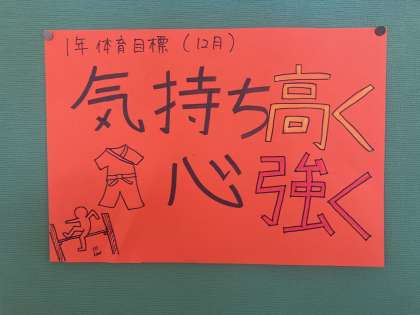 1年 体育目標 (12月)
気持ち高く
心強く